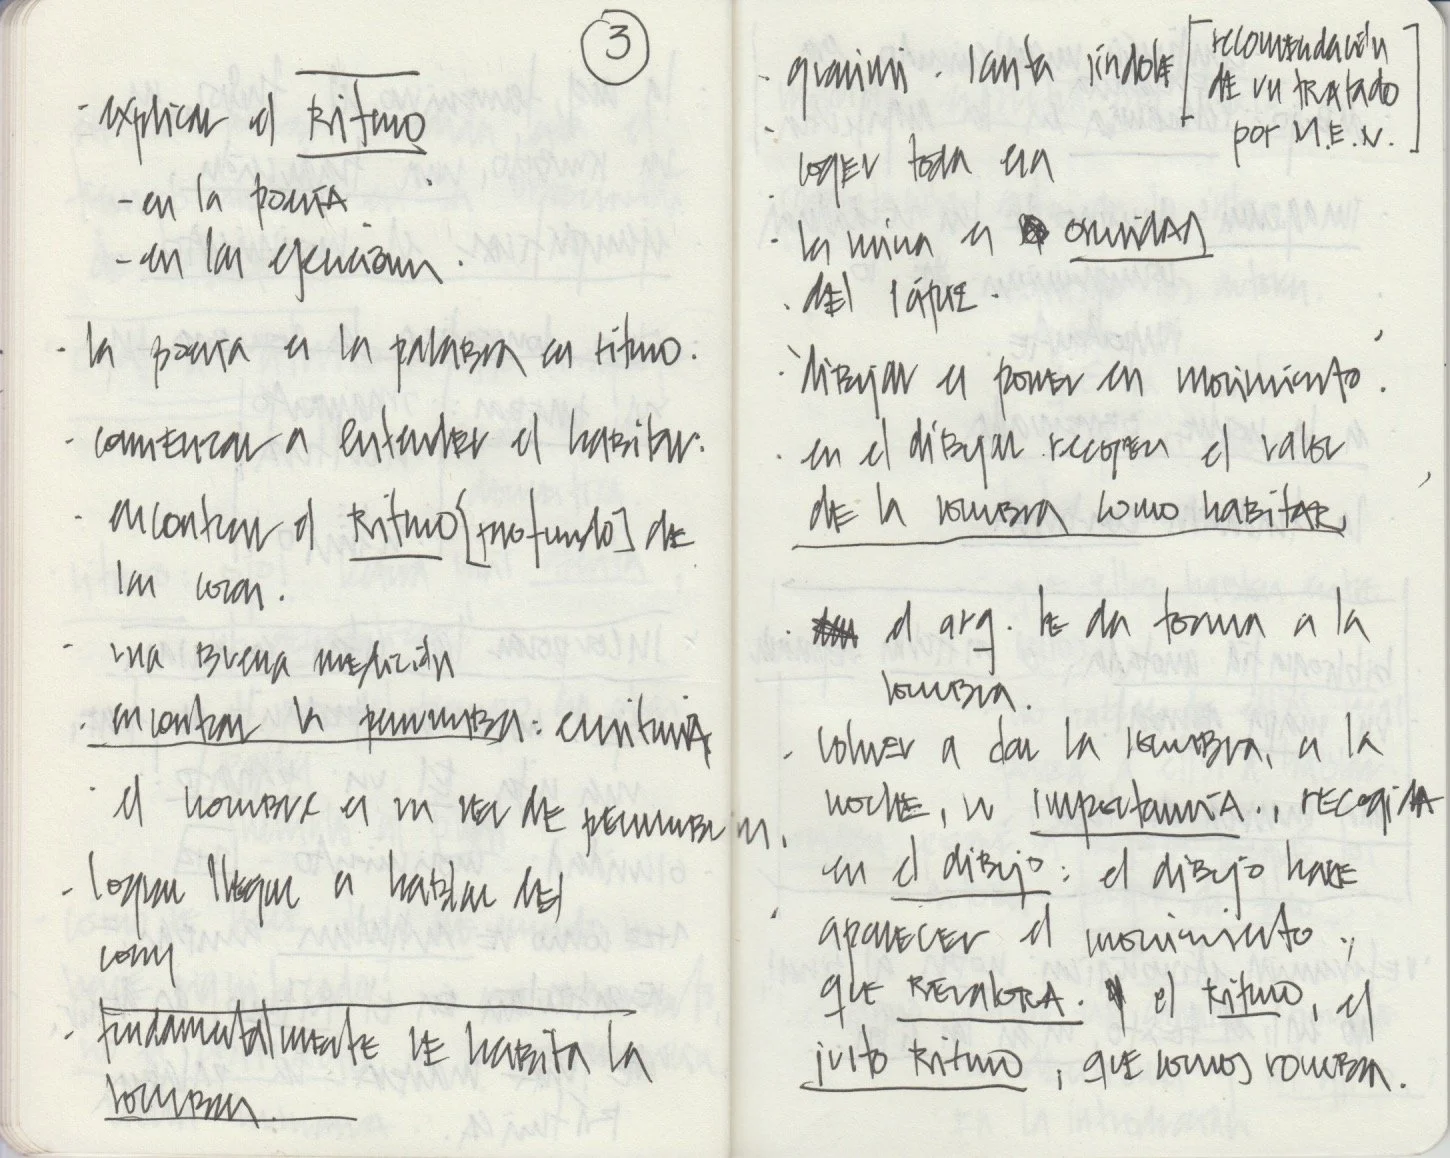 3
- explicar el Ritmo
- en la poesía
- en los ejercicios.
. la poesía es la palabra en ritmo.
- comenzar a entender el habitar.
- encontrar el Ritmo [profundo] de
las cosas.
- una buena medición
. encontrar la penumbra:
. el hombre es un ser de penumbras.
- logran llegar a hablar del
- fundamentalmente se habita la
sombra.
. Santa Síndole [recomendación
de un tratado
por M.E.N.]
. coger toda esa
. la mina es oscuridad
. del lápiz.
. dibujar es poner en movimiento.
. en el dibujar recogen el valor
de la sombra como habitar,
. el arq. le da forma a la
sombra.
. volver a dar la sombra, a la
noche, su importancia., recogida
en el dibujo: el dibujo hace
aparecer el movimiento.,
que REVALORA. y el ritmo, el
justo Ritmo, que somos sombra.